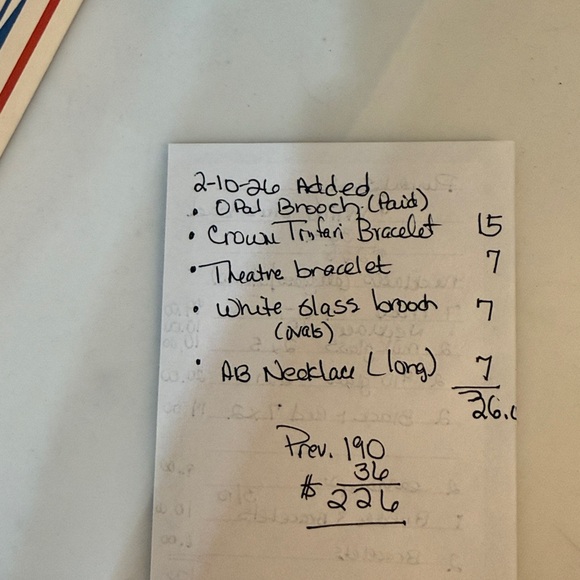 2-10-26 Added
• Opal Brooch (Paid)
• Crown Trifari Bracelet 15
• Theatre bracelet 7
• White Glass brooch 7
(ovals)
• AB Necklace (long) 7
36.0
Prev. 190
36
$ 226